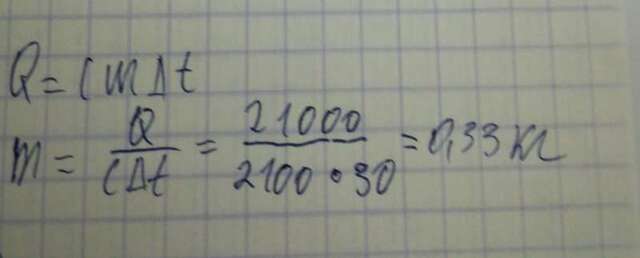 Q = cmΔt
m = Q / cΔt = 21000 / 2100 • 30 = 0,33 кг